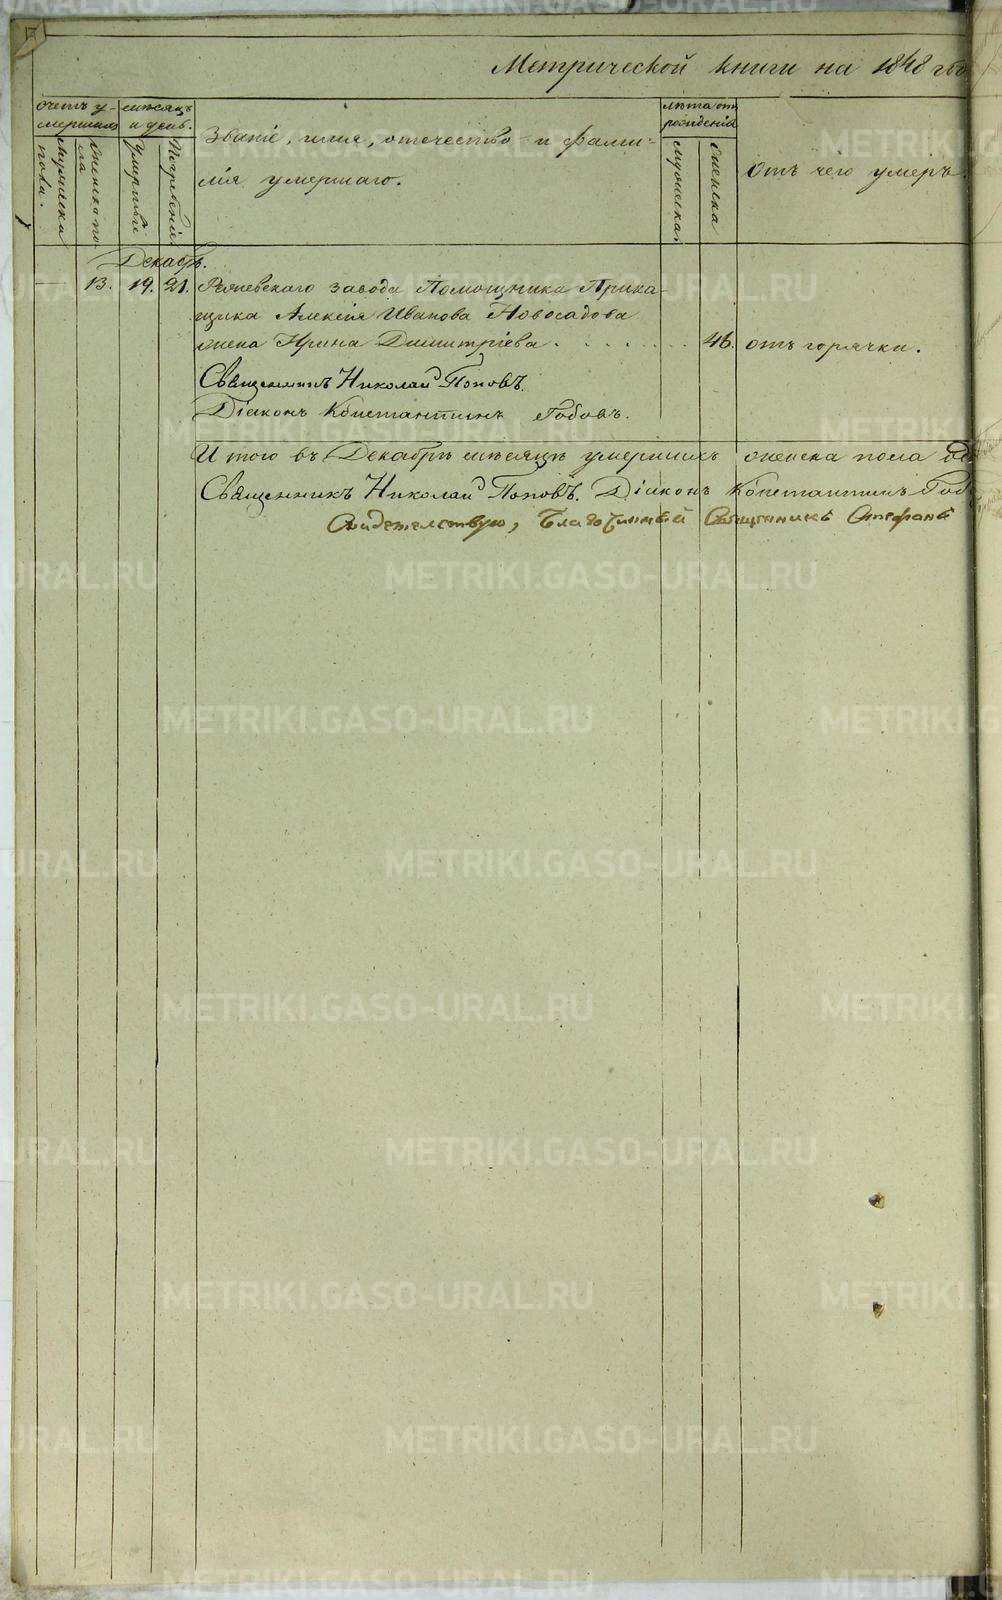 Метрической книги на 1848 год
счетъ у-
мершихъ
мѣсяцъ
и день.
Званіе, имя, отчество и фами-
лія умершаго.
лѣта отъ
рожденія
Отъ чего умеръ.
мужеска
пола.
женска по
ла
Умертвія
Погребенія
мужеска.
женска
Декабрь.
13. 19. 21. завода Помощника Прика-
щика Алексія Иванова Новосадова
жена Ирина Димитріева. 46. отъ горячки.
Священникъ Николай Поповъ.
Діаконъ Константинъ
Итого въ Декабрѣ мѣсяцѣ умершихъ женска пола
Священникъ Николай Поповъ. Діаконъ Константинъ
Свидетельствую, Благочинный Священникъ Стефанъ
METRIKI.GASO-URAL.RU